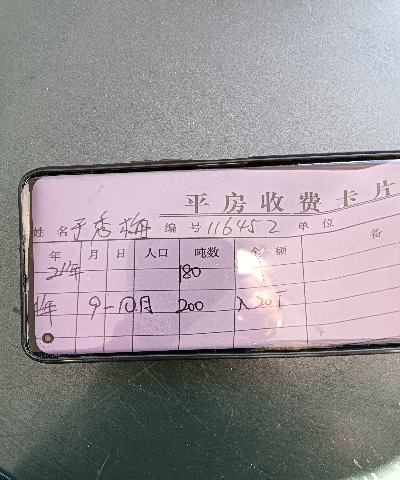 平房收费卡片
姓名 于秀梅 编号 116452 单位
年 月 日 人口 吨数 金额 备
21年 180
9-10月 200 入20